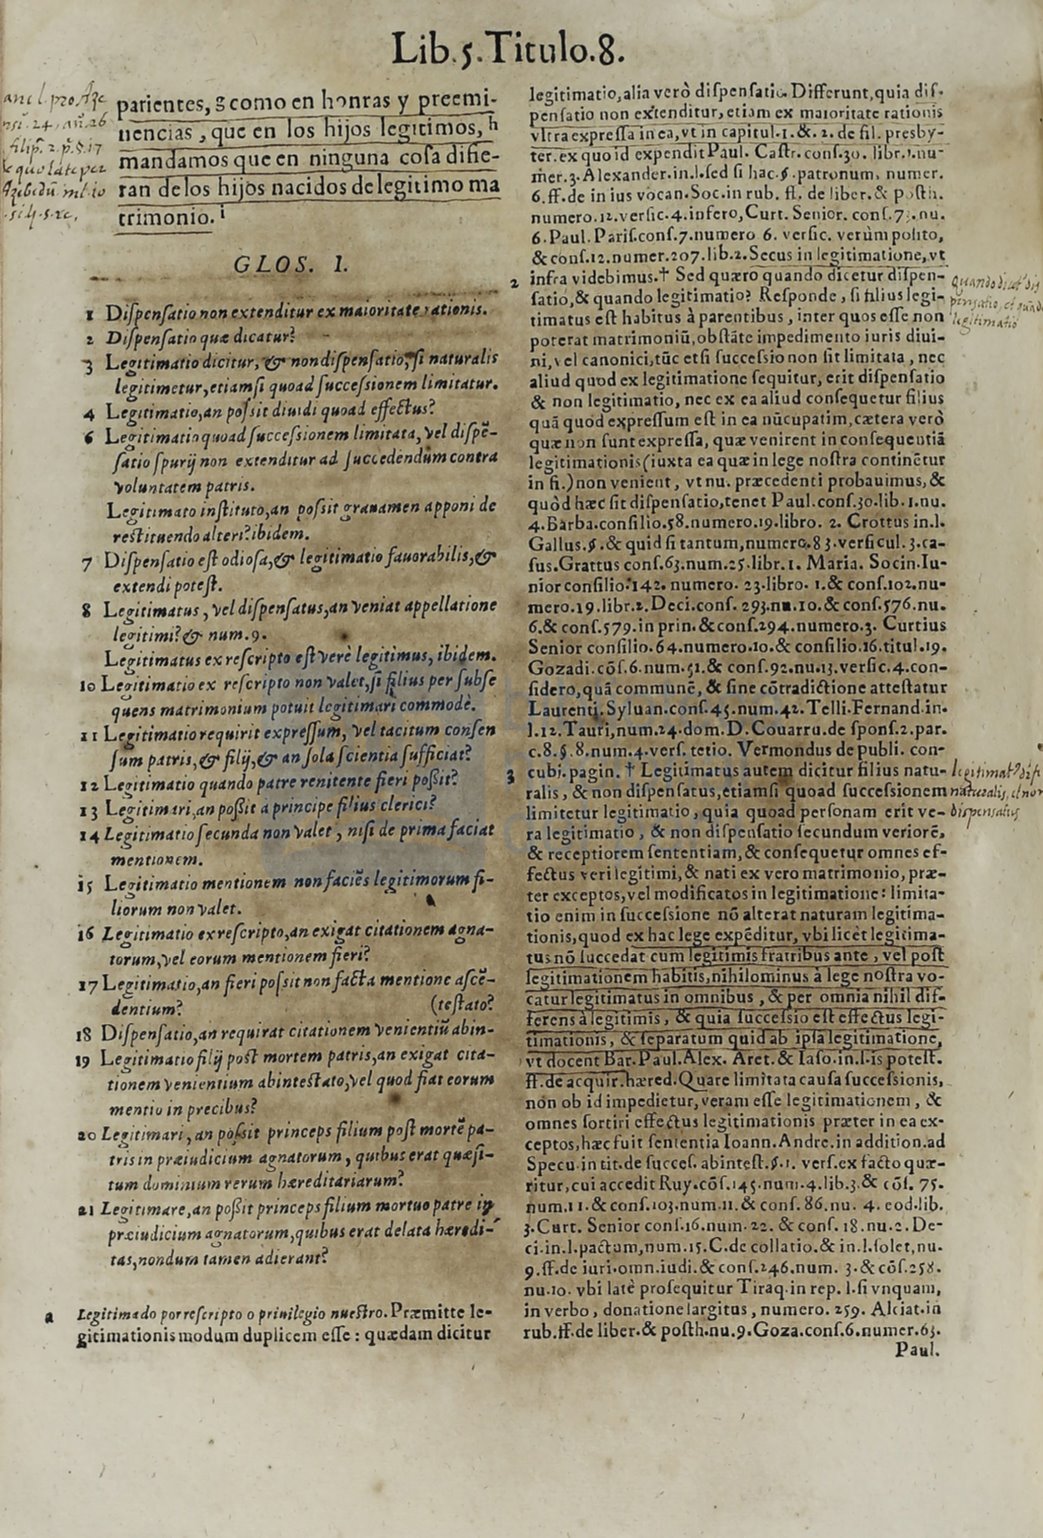 Lib.5.Titulo.8.
parientes, g como en honras y preemi-
nencias, que en los hijos legitimos, h
mandamos que en ninguna cosa difie-
ran de los hijos nacidos de legitimo ma
trimonio. i
GLOS. I.
1 Dispensatio non extenditur ex maioritate rationis.
2 Dispensatio quæ dicatur?
3 Legitimatio dicitur, & non dispensatio, si naturalis
legitimetur, etiamsi quoad successionem limitatur.
4 Legitimatio, an possit diuidi quoad effectus?
6 Legitimatio quoad successionem limitata, vel dispẽ-
satio spurij non extenditur ad succedendum contra
voluntatem patris.
Legitimato instituto, an possit grauamen apponi de
restituendo alteri? ibidem.
7 Dispensatio est odiosa, & legitimatio fauorabilis, &
extendi potest.
8 Legitimatus, vel dispensatus, an veniat appellatione
legitimi? & num.9.
Legitimatus ex rescripto est verè legitimus, ibidem.
10 Legitimatio ex rescripto non valet, si filius per subse
quens matrimonium potuit legitimari commodè.
11 Legitimatio requirit expressum, vel tacitum consen
sum patris, & filij, & an sola scientia sufficiat?
12 Legitimatio quando patre renitente fieri possit?
13 Legitimari, an possit a principe filius clerici?
14 Legitimatio secunda non valet, nisi de prima faciat
mentionem.
15 Legitimatio mentionem non faciẽs legitimorum fi-
liorum non valet.
16 Legitimatio ex rescripto, an exigat citationem agna-
torum, vel eorum mentionem fieri?
17 Legitimatio, an fieri possit non facta mentione ascẽ-
dentium? (testato?
18 Dispensatio, an requirat citationem venientiũ abin-
19 Legitimatio filij post mortem patris, an exigat cita-
tionem venientium abintestato, vel quod fiat eorum
mentio in precibus?
20 Legitimari, an possit princeps filium post mortẽ pa-
tris in præiudicium agnatorum, quibus erat quæsi-
tum dominium rerum hæreditariarum?
21 Legitimare, an possit princeps filium mortuo patre in
præiudicium agnatorum, quibus erat delata hæredi-
tas, nondum tamen adierant?
a Legitimado por rescripto o priuilegio nuestro. Præmitte le-
gitimationis modum duplicem esse: quædam dicitur
legitimatio, alia verò dispensatio. Differunt, quia dis-
pensatio non extenditur, etiam ex maioritate rationis
vltra expressa in ea, vt in capitul.1.&.2. de fil. presby-
ter. ex quo id expendit Paul. Castr. cons.30. libr.1. nu-
mer.3. Alexander. in.l. sed si hac.§. patronum, numer.
6. ff. de in ius vocan. Soc. in rub. ff. de liber. & posth.
numero.12. versic.4. infero, Curt. Senior. cons.73. nu.
6. Paul. Paris. cons.7. numero 6. versic. verùm posito,
& cons.12. numer.207. lib.2. Secus in legitimatione, vt
2 infra videbimus.† Sed quæro quando dicetur dispen-
satio, & quando legitimatio? Responde, si filius legi-
timatus est habitus à parentibus, inter quos esse non
poterat matrimoniũ, obstãte impedimento iuris diui-
ni, vel canonici, tũc etsi successio non sit limitata, nec
aliud quod ex legitimatione sequitur, erit dispensatio
& non legitimatio, nec ex ea aliud consequetur filius
quã quod expressum est in ea nũcupatim, cætera verò
quæ non sunt expressa, quæ venirent in consequentiã
legitimationis (iuxta ea quæ in lege nostra continẽtur
in fi.) non venient, vt nu. præcedenti probauimus, &
quòd hæc sit dispensatio, tenet Paul. cons.30. lib.1. nu.
4. Barba. consilio.58. numero.19. libro. 2. Crottus in.l.
Gallus.§.& quid si tantum, numero.83. versicul.3. ca-
sus. Grattus cons.63. num.25. libr.1. Maria. Socin. Iu-
nior consilio.142. numero. 23. libro. 1.& cons.102. nu-
mero.19. libr.2. Deci. cons. 293. nu.10.& cons.576. nu.
6.& cons.579. in prin.& cons.294. numero.3. Curtius
Senior consilio.64. numero.10.& consilio.16. titul.19.
Gozadi. cõs.6. num.51.& cons.92. nu.13. versic.4. con-
sidero, quã communẽ, & sine cõtradictione attestatur
Laurenti. Syluan. cons.45. num.42. Telli. Fernand. in.
l.12. Tauri, num.24. dom. D. Couarru. de spons.2. par.
c.8.§.8. num.4. vers. tetio. Vermondus de publi. con-
3 cubi. pagin. † Legitimatus autem dicitur filius natu-
ralis, & non dispensatus, etiamsi quoad successionem
limitetur legitimatio, quia quoad personam erit ve-
ra legitimatio, & non dispensatio secundum veriorẽ,
& receptiorem sententiam, & consequetur omnes ef-
fectus veri legitimi, & nati ex vero matrimonio, præ-
ter exceptos, vel modificatos in legitimatione: limita-
tio enim in successione nõ alterat naturam legitima-
tionis, quod ex hac lege expẽditur, vbi licèt legitima-
tus nõ succedat cum legitimis fratribus ante, vel post
legitimationem habitis, nihilominus à lege nostra vo-
catur legitimatus in omnibus, & per omnia nihil dif-
ferens à legitimis, & quia successio est effectus legi-
timationis, & separatum quid ab ipsa legitimatione,
vt docent Bar. Paul. Alex. Aret. & Iaso. in.l. is potest.
ff. de acquir. hæred. Quare limitata causa successionis,
non ob id impedietur, veram esse legitimationem, &
omnes sortiri effectus legitimationis præter in ea ex-
ceptos, hæc fuit sententia Ioann. Andre. in addition. ad
Specu. in tit. de succes. abintest.§.1. vers. ex facto quæ-
ritur, cui accedit Ruy. cõs.145. num.4. lib.3.& cõs. 75.
num.11.& cons.103. num.11.& cons. 86. nu. 4. eod. lib.
3. Curt. Senior cons.16. num. 22. & cons. 18. nu.2. De-
ci. in.l. pactum, num.15. C. de collatio.& in.l. solet, nu.
9. ff. de iuri. omn. iudi. & cons.246. num. 3.& cõs.258.
nu.10. vbi latè prosequitur Tiraq. in rep. l. si vnquam,
in verbo, donatione largitus, numero. 259. Alciat. in
rub. ff. de liber. & posth. nu.9. Goza. cons.6. numer.63.
Paul.